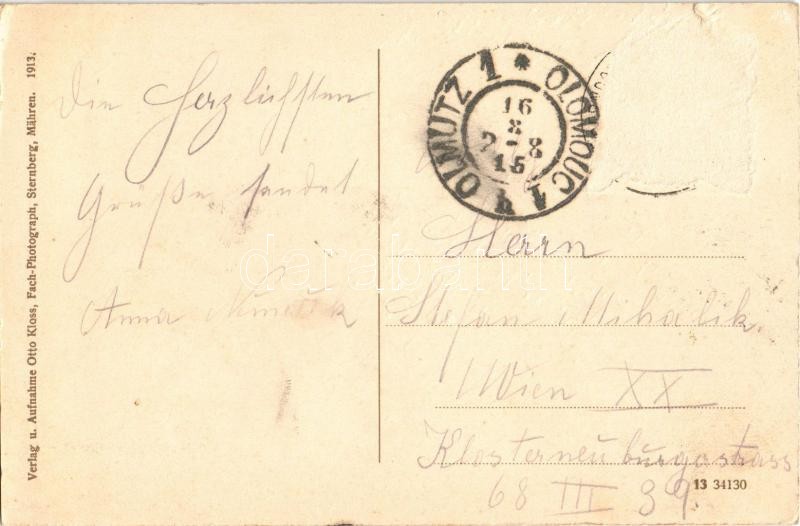 Verlag u. Aufnahme Otto Kloss, Fach-Photograph, Sternberg, Mähren. 1913.
Die Herzlichsten
Grüße sendet
Anna
OLMÜTZ 1 * OLOMOUC 1
16
8
15
darabanth
Herrn
Stefan Mihalik.
Wien XX
Klosterneuburgstrass
68 III 39.
13 34130